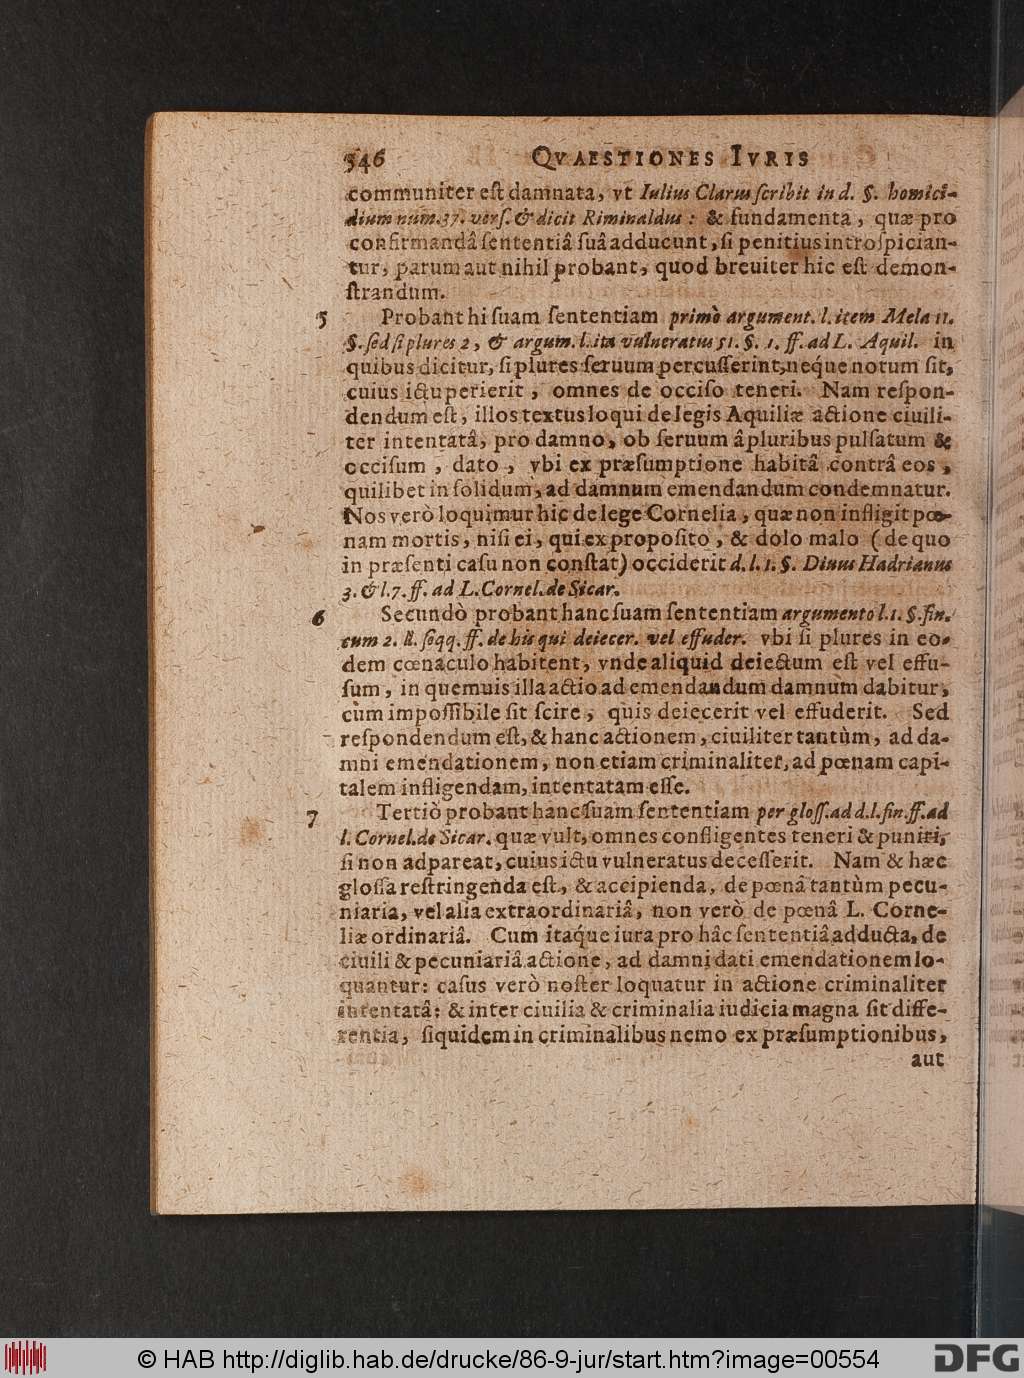 546 QVAESTIONES IVRIS
communiter eſt damnata, vt Iulius Clarus ſcribit in d. §. homici-
dium num. 37. verſ. & dicit Riminaldus: & fundamenta, quæ pro
confirmandâ ſententiâ ſuâ adducunt, ſi penitius introſpician-
tur, parum aut nihil probant, quod breuiter hic eſt demon-
ſtrandum.
5 Probant hi ſuam ſententiam primò argument. l. item Mela 11.
§. ſed ſi plures 2, & argum. l. ita vulneratus 51. §. 1. ff. ad L. Aquil. in
quibus dicitur, ſi plures ſeruum percuſſerint, neq́ue notum ſit,
cuius ictu perierit, omnes de occiſo teneri. Nam reſpon-
dendum eſt, illos textus loqui de legis Aquiliæ actione ciuili-
ter intentatâ, pro damno, ob ſeruum â pluribus pulſatum &
occiſum, dato, vbi ex præſumptione habitâ contrâ eos,
quilibet in ſolidum, ad damnum emendandum condemnatur.
Nos verò loquimur hic de lege Cornelia, quæ non infligit pœ-
nam mortis, niſi ei, qui ex propoſito, & dolo malo (de quo
in præſenti caſu non conſtat) occiderit d. l. 1. §. Diuus Hadrianus
3. & l. 7. ff. ad L. Cornel. de Sicar.
6 Secundò probant hanc ſuam ſententiam argumento l. 1. §. fin.
cum 2. ll. ſeqq. ff. de his qui deiecer. vel effuder. vbi ſi plures in eo-
dem cœnaculo habitent, vnde aliquid deiectum eſt vel effu-
ſum, in quemuis illa actio ad emendandum damnum dabitur,
cùm impoſſibile ſit ſcire, quis deiecerit vel effuderit. Sed
reſpondendum eſt, & hanc actionem, ciuiliter tantùm, ad da-
mni emendationem, non etiam criminaliter, ad pœnam capi-
talem infligendam, intentatam eſſe.
7 Tertiò probant hanc ſuam ſententiam per gloſſ. ad d. l. fin. ff. ad
l. Cornel. de Sicar. quæ vult, omnes confligentes teneri & puniri,
ſi non adpareat, cuius ictu vulneratus deceſſerit. Nam & hæc
gloſſa reſtringenda eſt, & accipienda, de pœnâ tantùm pecu-
niaria, vel alia extraordinariâ, non verò de pœnâ L. Corne-
liæ ordinariâ. Cum itaq́ue iura pro hâc ſententiâ adducta, de
ciuili & pecuniariâ actione, ad damni dati emendationem lo-
quantur: caſus verò noſter loquatur in actione criminaliter
intentatâ: & inter ciuilia & criminalia iudicia magna ſit diffe-
rentia, ſiquidem in criminalibus nemo ex præſumptionibus,
aut
© HAB http://diglib.hab.de/drucke/86-9-jur/start.htm?image=00554
DFG